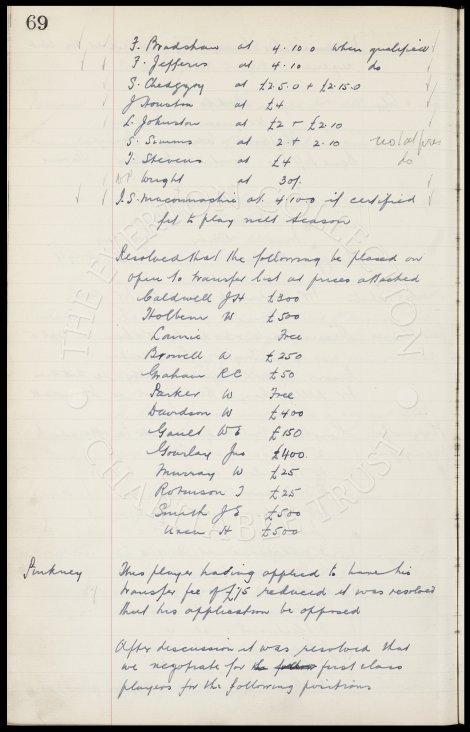 69
F. Bradshaw at 4.10.0 when qualified
F. Jefferis at 4.10 do
S. Chedgzoy at £2.5.0 + £2.15.0
J Houston at £4
L. Johnston at £2 + £2.10
S. Simms at 2 + 2.10
T. Stevens at £4 do
Wright at 30/-
J.S. Maconnachie at 4.10.0 if certified
fit to play next season
Resolved that the following be placed on
open to transfer list at prices attached
Caldwell JH £300
Holbem W £500
Lawrie Free
Browell A £250
Graham RC £50
Parker W Free
Davidson W £400
Gault WE £150
Gourlay Jas £400.
Murray W £25
Robinson J £25
Smith JE £500
H £500
Pinkney
This player having applied to have his
transfer fee of £75 reduced it was resolved
that his application be opposed
After discussion it was resolved that
we negotiate for first class
players for the following positions
THE EVERTON COLLECTION
CHARITABLE TRUST